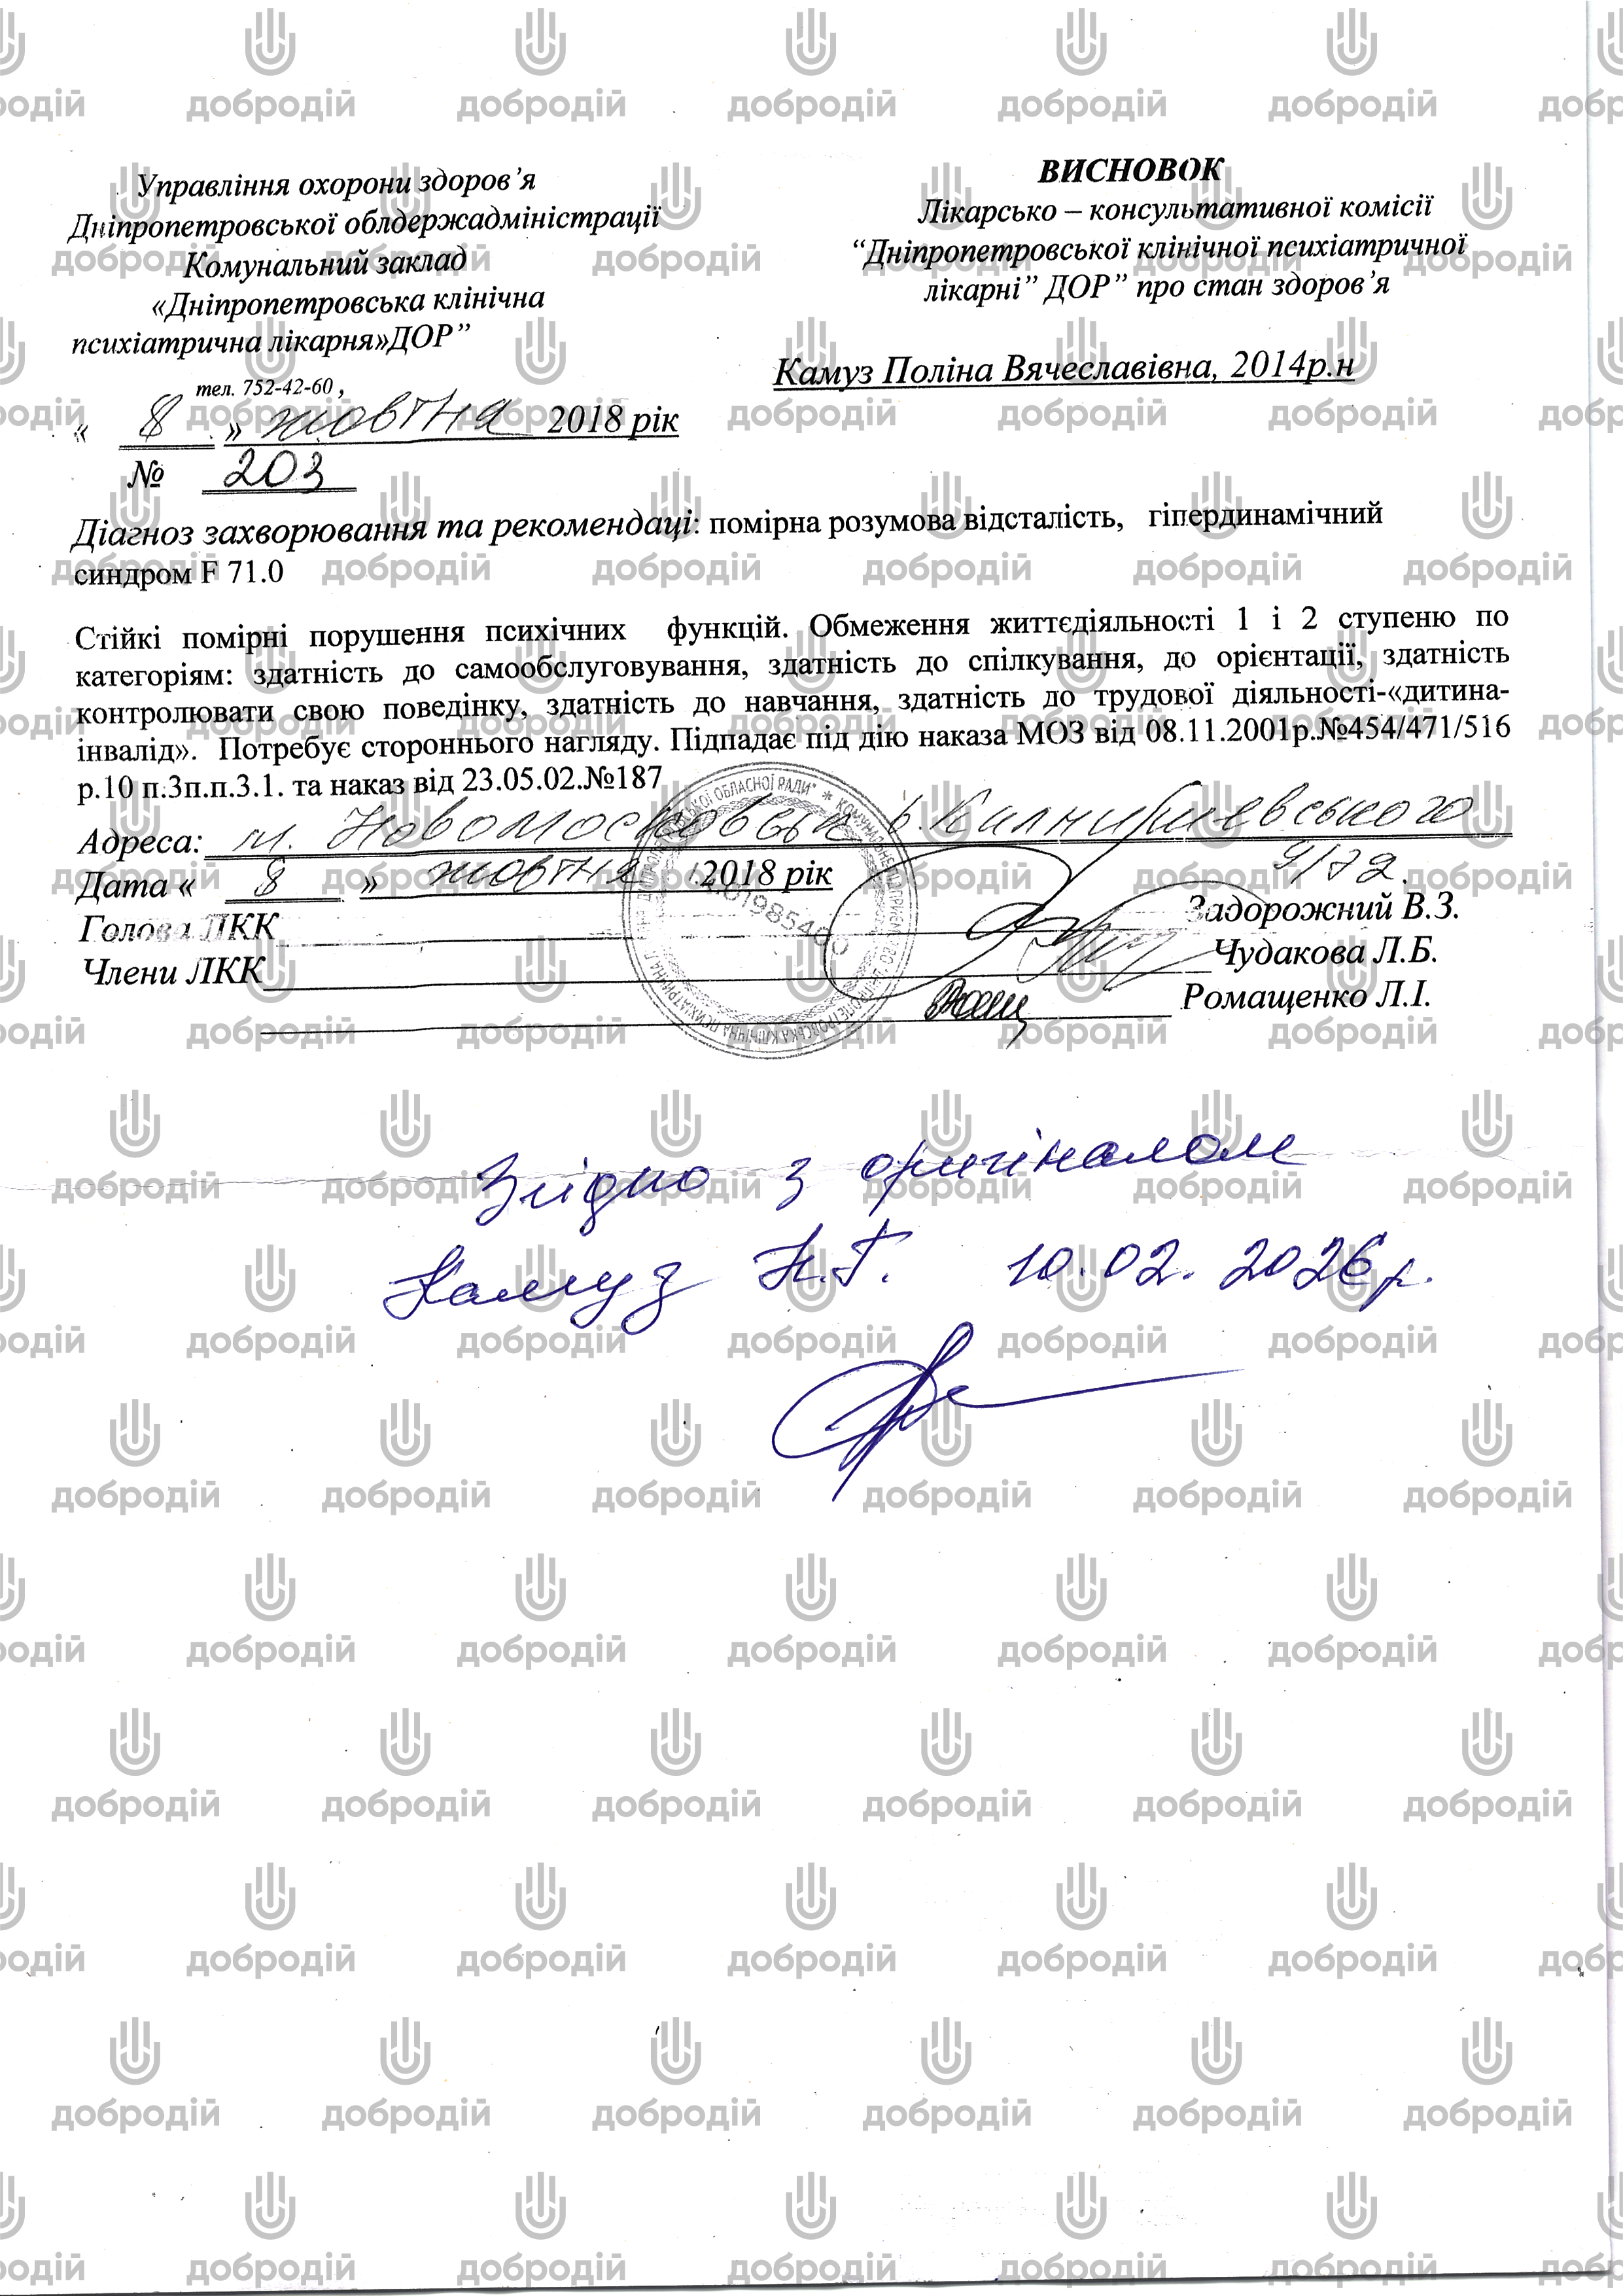 Управління охорони здоров’я
Дніпропетровської облдержадміністрації
Комунальний заклад
«Дніпропетровська клінічна
психіатрична лікарня»ДОР”
тел. 752-42-60 ,
« 8 » жовтня 2018 рік
№ 203
ВИСНОВОК
Лікарсько – консультативної комісії
“Дніпропетровської клінічної психіатричної
лікарні” ДОР” про стан здоров’я
Камуз Поліна Вячеславівна, 2014р.н
Діагноз захворювання та рекомендаці: помірна розумова відсталість, гіпердинамічний
синдром F 71.0
Стійкі помірні порушення психічних функцій. Обмеження життєдіяльності 1 і 2 ступеню по
категоріям: здатність до самообслуговування, здатність до спілкування, до орієнтації, здатність
контролювати свою поведінку, здатність до навчання, здатність до трудової діяльності-«дитина-
інвалід». Потребує стороннього нагляду. Підпадає під дію наказа МОЗ від 08.11.2001р.№454/471/516
р.10 п.3п.п.3.1. та наказ від 23.05.02.№187
Адреса: м. Новомосковськ
9/72.
Дата « 8 » жовтня 2018 рік
Голова ЛКК Задорожний В.З.
Члени ЛКК Чудакова Л.Б.
Ромащенко Л.І.
01985400
Згідно з оригіналом
Камуз Н.Г. 10.02.2026р.
добродій